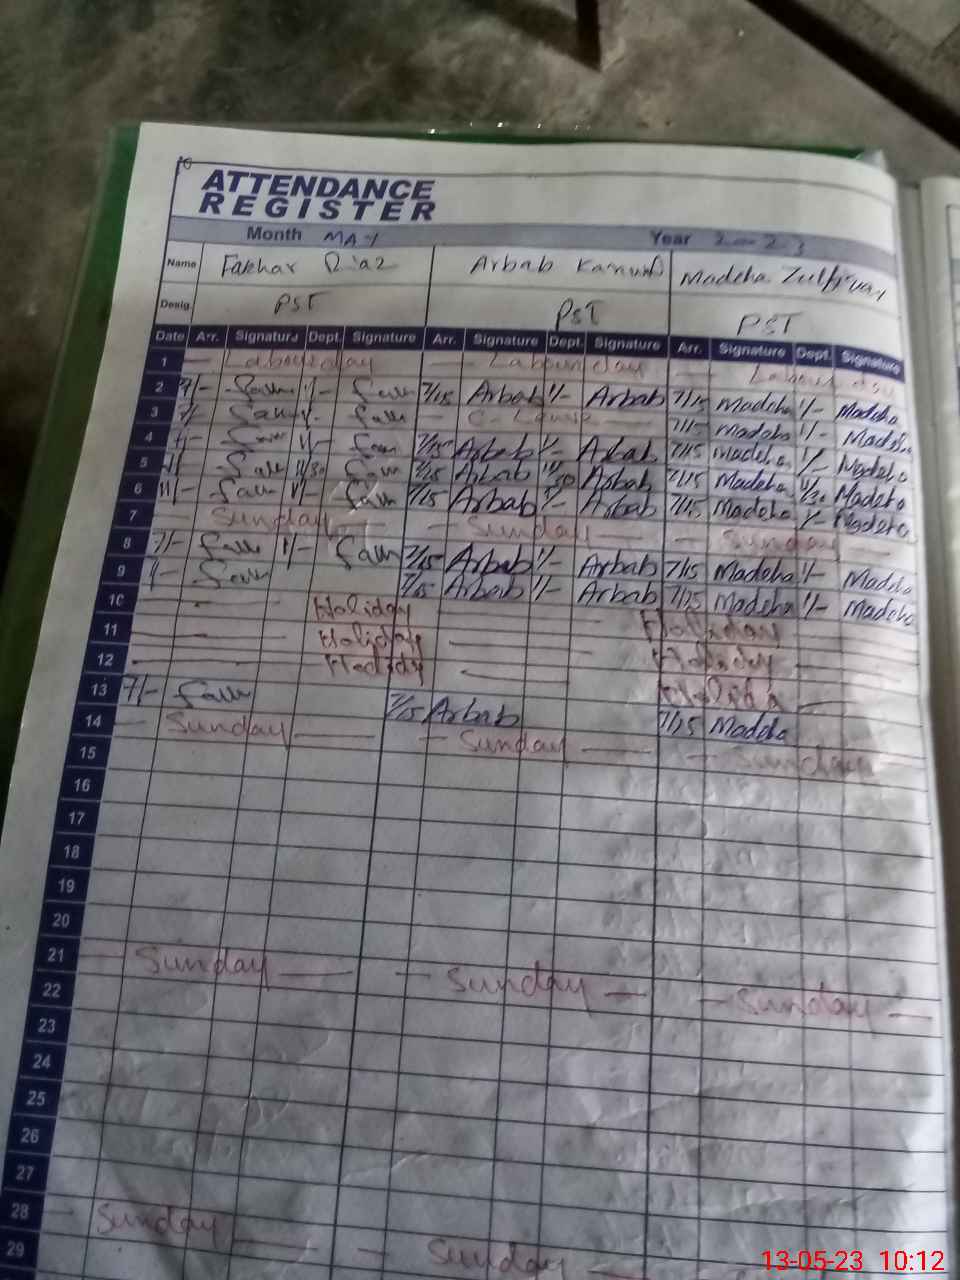 ATTENDANCE
REGISTER
Month MAY Year 2023
Name Fakhar Riaz Arbab Madeha
Desig. PST PST PST
Date Arr. Signature Dept. Signature Arr. Signature Dept. Signature Arr. Signature Dept. Signature
1 — Labour day — Labour day — Labour day
2 7/- 1/- 7/15 Arbab 1/- Arbab 7/15 Madeha 1/- Madeha
3 7/- 1/- C- Leave 7/15 Madeha 1/- Madeha
4 1/- 7/15 Arbab 1/- Arbab 7/15 Madeha 1/- Madeha
5 11/30 7/15 Arbab 11/30 Arbab 7/15 Madeha 11/30 Madeha
6 1/- 7/15 Arbab 1/- Arbab 7/15 Madeha 1/- Madeha
7 Sunday — — Sunday — — Sunday —
8 7/- 1/- 7/15 Arbab 1/- Arbab 7/15 Madeha 1/- Madeha
9 7/15 Arbab 1/- Arbab 7/25 Madeha 1/- Madeha
10 Holiday Holiday
11 Holiday Holiday
12 Holiday Holida
13 7/- 7/15 Arbab 7/15 Madeha
14 — Sunday — — Sunday — — Sunday
15
16
17
18
19
20
21 — Sunday — — Sunday — — Sunday —
22
23
24
25
26
27
28 — Sunday — — Sunday —
29
13-05-23 10:12